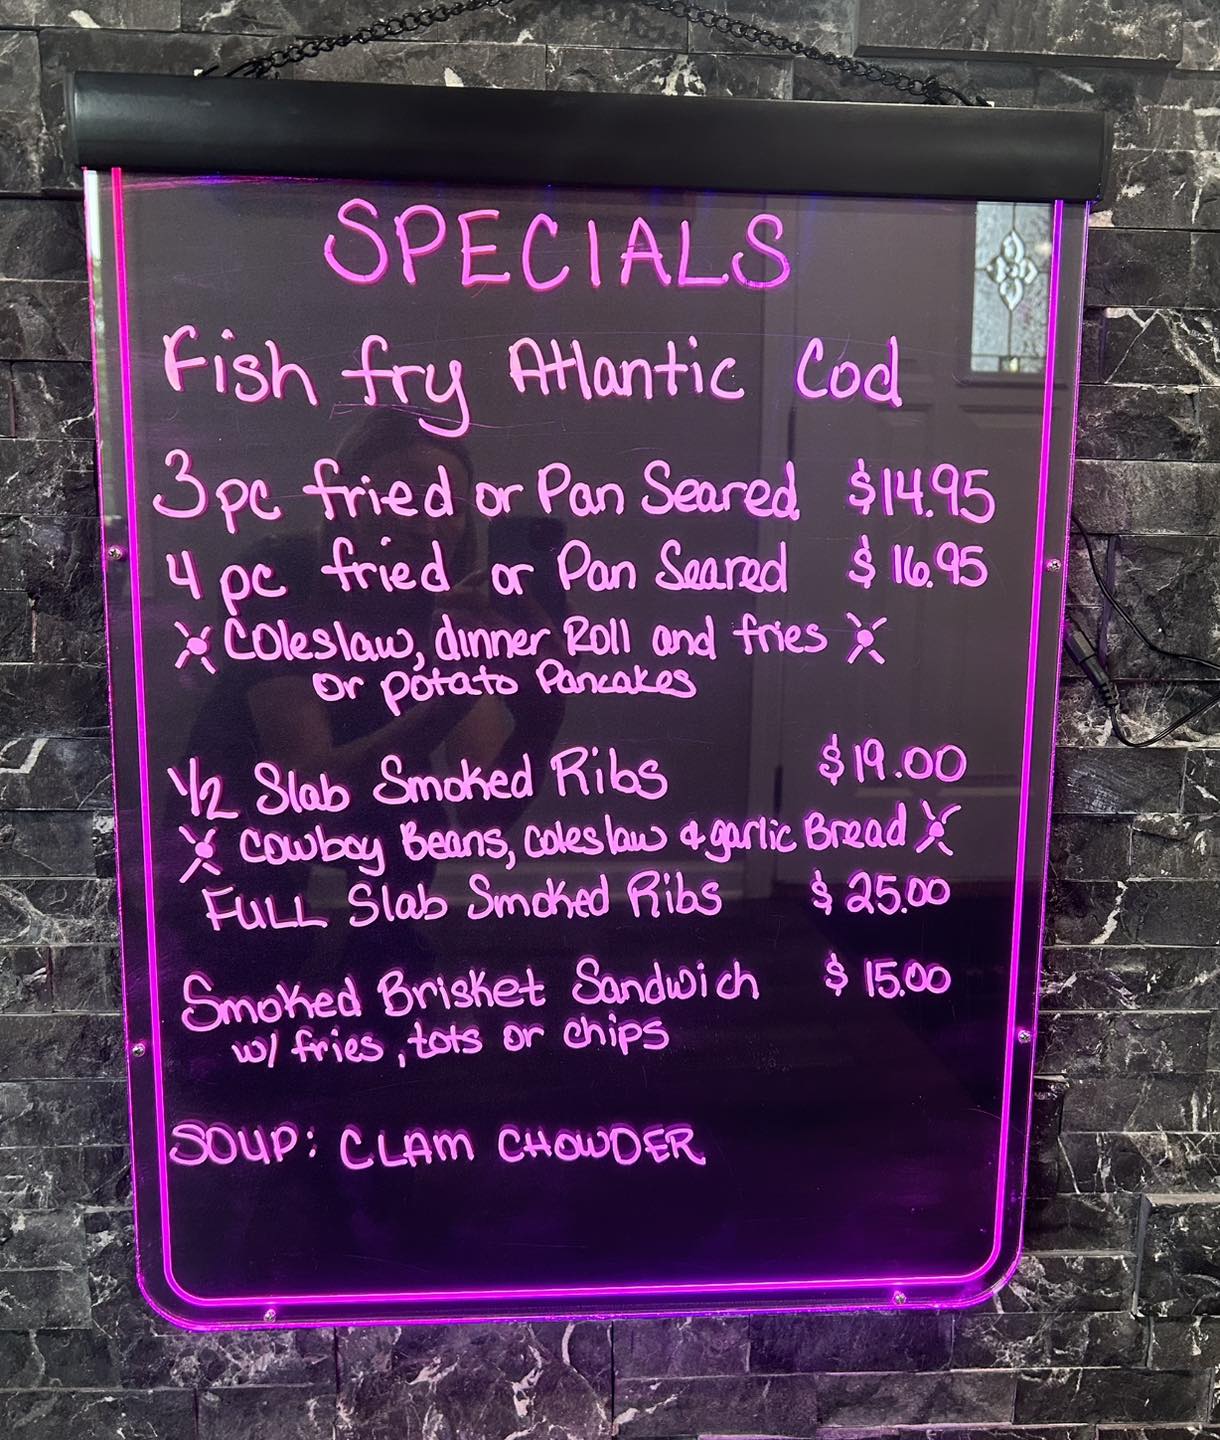 SPECIALS
Fish fry Atlantic Cod
3 pc fried or Pan Seared $14.95
4 pc fried or Pan Seared $16.95
Coleslaw, dinner Roll and fries
or potato Pancakes
1/2 Slab Smoked Ribs $19.00
Cowboy Beans, coleslaw & garlic Bread
FULL Slab Smoked Ribs $25.00
Smoked Brisket Sandwich $15.00
w/ fries, tots or chips
SOUP: CLAM CHOWDER